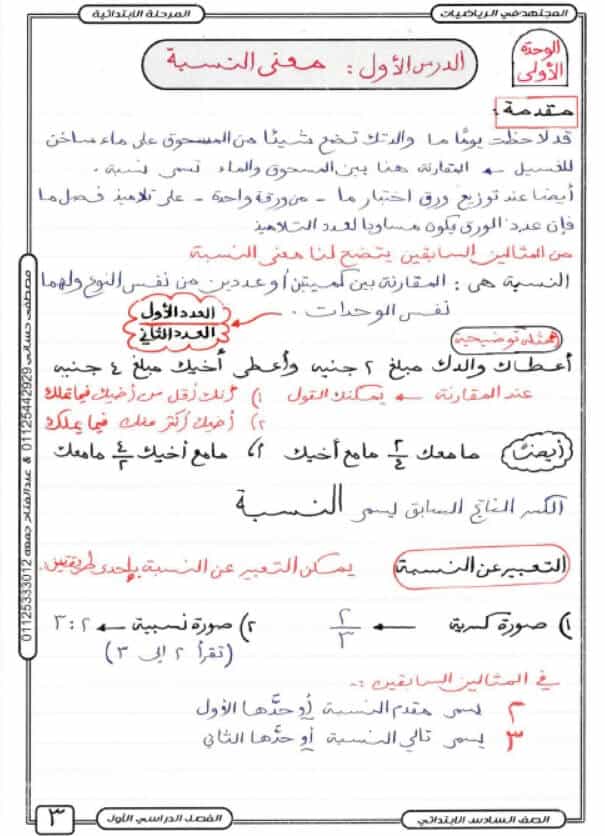 المجتهد في الرياضيات
المرحلة الابتدائية
الوحدة الأولى
الدرس الأول : معنى النسبة
مقدمة :
قد لاحظت يومًا ما والدتك تضع شيئًا من المسحوق على ماء ساخن
للغسيل ← المقارنة هنا بين المسحوق والماء تسمى نسبة .
أيضا عند توزيع ورق اختبار ما - من ورقة واحدة - على تلاميذ فصل ما
فإن عدد الورق يكون مساويا لعدد التلاميذ
من المثالين السابقين يتضح لنا معنى النسبة
النسبة هى : المقارنة بين كميتين أو عددين من نفس النوع ولهما
نفس الوحدات .
العدد الأول
العدد الثاني
أمثلة توضيحية
أعطاك والدك مبلغ ٢ جنيه وأعطى أخيك مبلغ ٤ جنيه
عند المقارنة ← يمكنك القول ١) أنك أقل من أخيك فيما تملك
٢) أخيك أكثر منك فيما يملك
أيضًا مامعك ٢/٤ مامع أخيك ، مامع أخيك ٤/٢ مامعك
الكسر الناتج السابق يسمى النسبة
التعبير عن النسبة يمكن التعبير عن النسبة بإحدى طريقتين
١) صورة كسرية ← ٢/٣ ٢) صورة نسبية ← ٢ : ٣
(تقرأ ٢ إلى ٣)
في المثالين السابقين :-
٢ يسمى مقدم النسبة أو حدَّها الأول
٣ يسمى تالي النسبة أو حدَّها الثاني
مصطفى حساني 01125442929 & عبدالفتاح جمعه 01125333012
الصف السادس الابتدائي
الفصل الدراسي الأول
٣